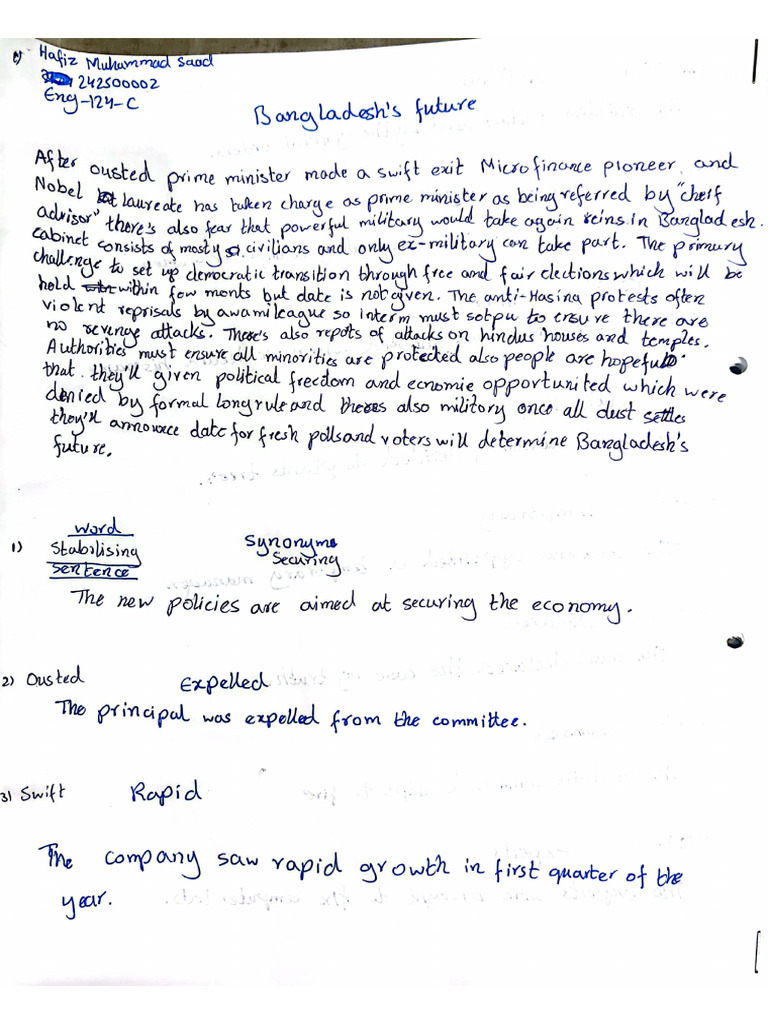 Hafiz Muhammad Saad
242500002
Eng-124-C
Bangladesh's future
After ousted prime minister made a swift exit Microfinance pioneer, and
Nobel laureate has taken charge as prime minister as being referred by "cheif
advisor" there's also fear that powerful military would take again reins in Bangladesh.
cabinet consists of mosty civilians and only ex-military can take part. The primary
challenge to set up democratic transition through free and fair elections which will be
hold within few monts but date is not given. The anti-Hasina protests often
violent reprisals by awami league so interm must setpu to ensure there are
no revenge attacks. There's also repots of attacks on hindus houses and temples.
Authorities must ensure all minorities are protected also people are hopeful
that they'll given political freedom and ecnomic opportunited which were
denied by formal long rule and theres also military once all dust settles
they'll announce date for fresh polls and voters will determine Bangladesh's
future.
word
1) Stabilising Synonyms
Securing
Sentence
The new policies are aimed at securing the economy.
2) Ousted Expelled
The principal was expelled from the committee.
3) Swift Rapid
The company saw rapid growth in first quarter of the
year.